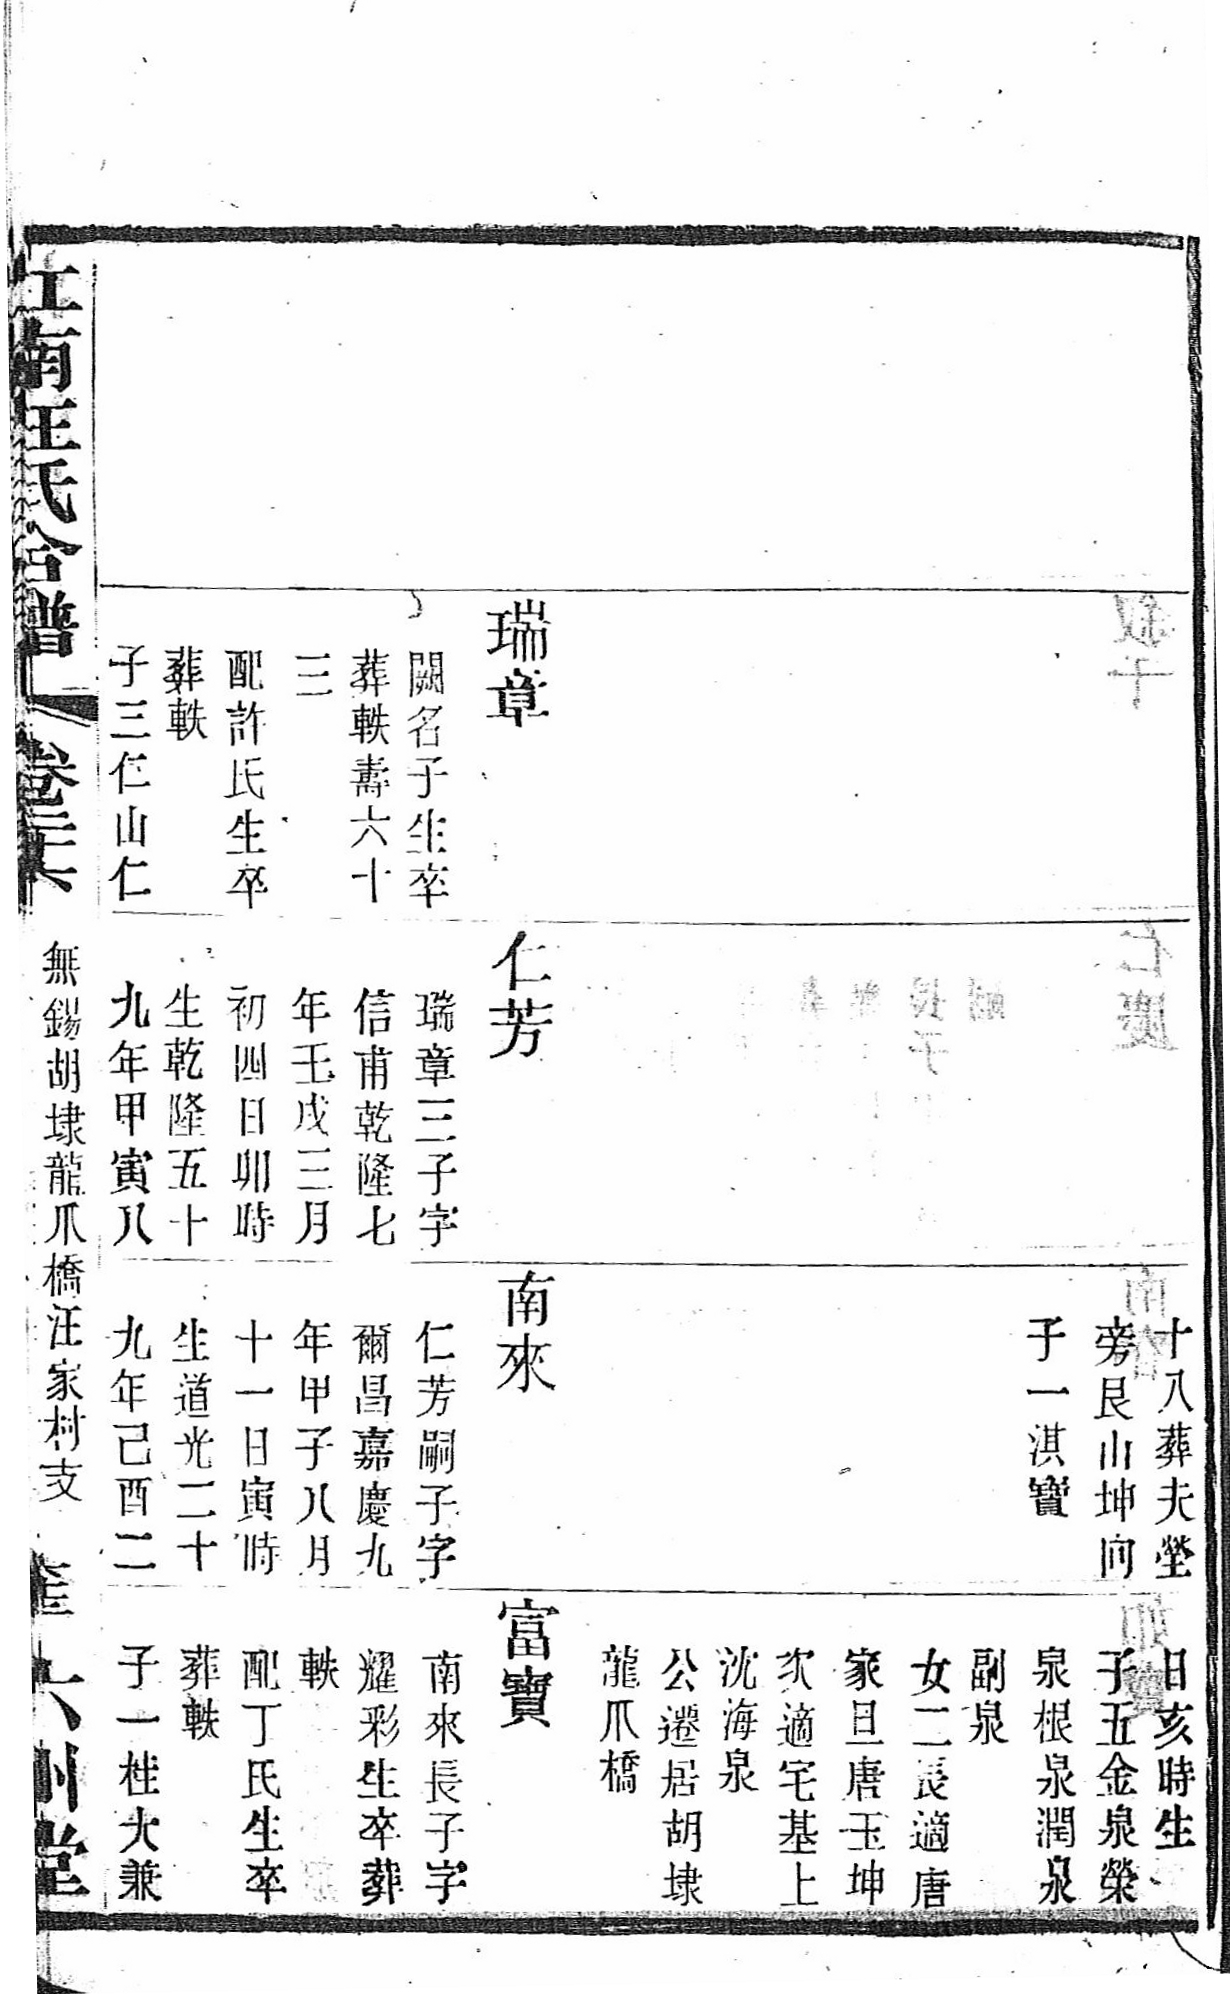 瑞章
闕名子生卒
葬軼壽六十
三
配許氏生卒
葬軼
子三仁山仁
仁芳
瑞章三子字
信甫乾隆七
年壬戌三月
初四日卯時
生乾隆五十
九年甲寅八
十八葬夫塋
旁艮山坤向
子一淇寶
南來
仁芳嗣子字
爾昌嘉慶九
年甲子八月
十一日寅時
生道光二十
九年己酉二
日亥時生
子五金泉榮
泉根泉潤泉
副泉
女二長適唐
家旦唐玉坤
次適宅基上
沈海泉
公遷居胡埭
龍爪橋
富寶
南來長子字
耀彩生卒葬
軼
配丁氏生卒
葬軼
子一桂大兼
江南汪氏合譜
卷二十六
無錫胡埭龍爪橋汪家村支
六州堂